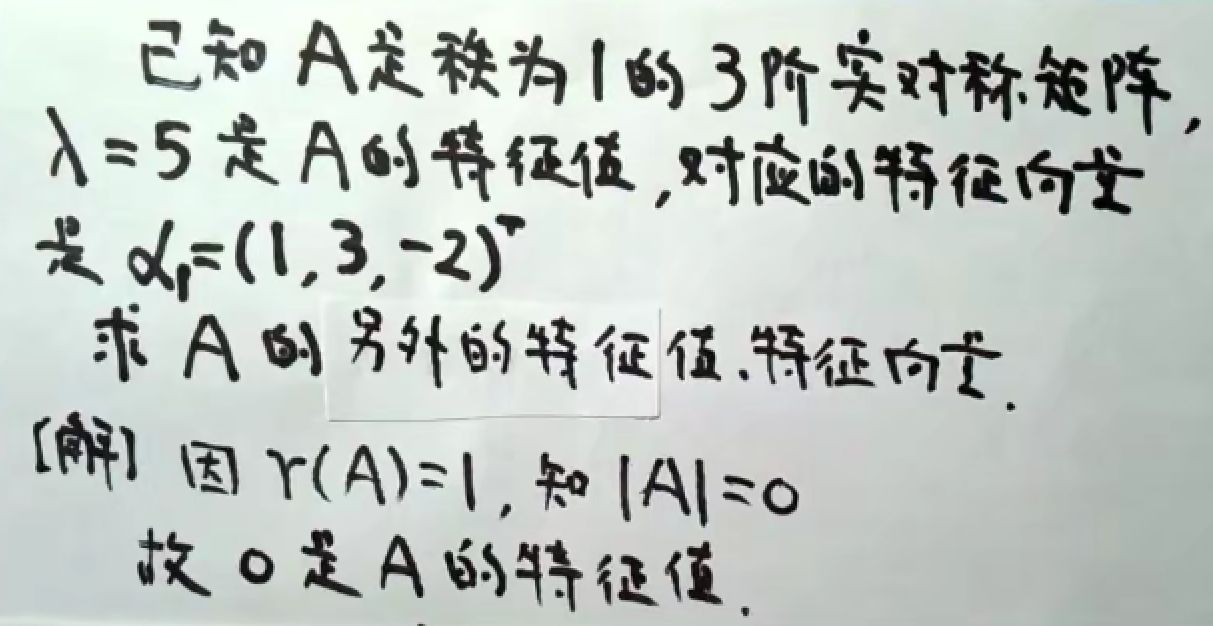 已知 A是秩为1的3阶实对称矩阵,
λ=5是A的特征值,对应的特征向量
是 α₁=(1,3,-2)ᵀ
求 A 的 另外的特征值.特征向量.
[解] 因 r(A)=1, 知 |A|=0
故 0 是 A 的特征值.